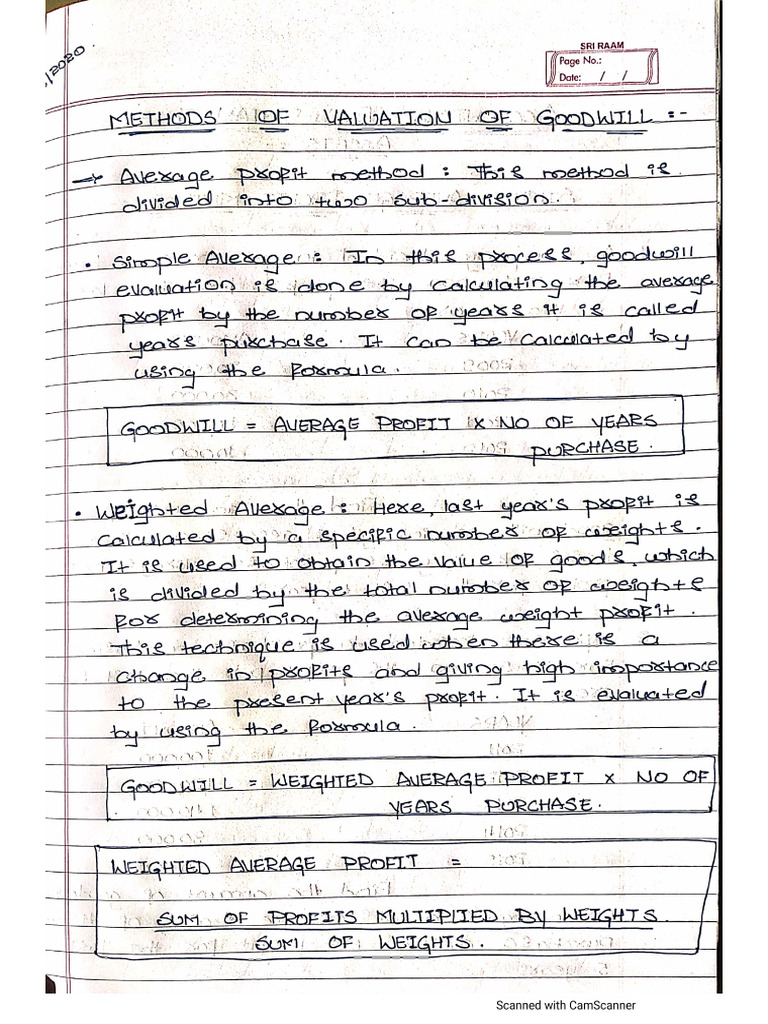 /2020.
SRI RAAM
Page No.:
Date: / /
METHODS OF VALUATION OF GOODWILL :-
→ Average profit method : This method is
divided into two sub-division.
• Simple Average : In this process, goodwill
evaluation is done by calculating the average
profit by the number of years it is called
years purchase. It can be calculated by
using the formula.
GOODWILL = AVERAGE PROFIT X NO OF YEARS
PURCHASE.
• Weighted Average : Here, last year's profit is
calculated by a specific number of weights.
It is used to obtain the value of goods, which
is divided by the total number of weights
for determining the average weight profit.
This technique is used when there is a
change in profits and giving high importance
to the present year's profit. It is evaluated
by using the formula.
GOODWILL = WEIGHTED AVERAGE PROFIT X NO OF
YEARS PURCHASE.
WEIGHTED AVERAGE PROFIT =
SUM OF PROFITS MULTIPLIED BY WEIGHTS
SUM OF WEIGHTS.
Scanned with CamScanner